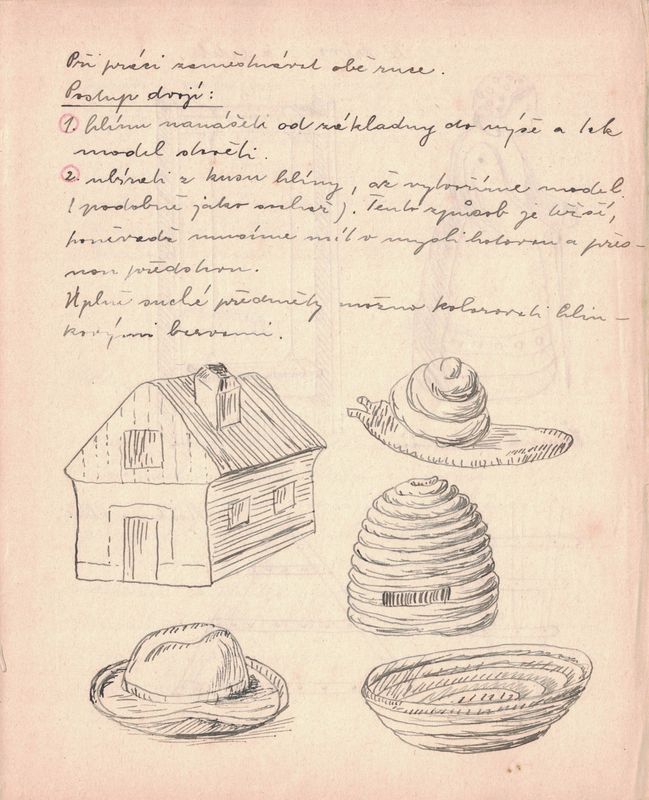 Při práci zaměstnávat obě ruce.
Postup dvojí:
1. hlínu nanášeti od základny do výše a tak
model stavěti.
2. ubírati z kusu hlíny, až vytvoříme model
(podobně jako sochař). Tento způsob je těžší,
poněvadž musíme mít v mysli hotovou a přes-
nou předlohu.
Úplně suché předměty možno kolorovati hlin-
kovými barvami.